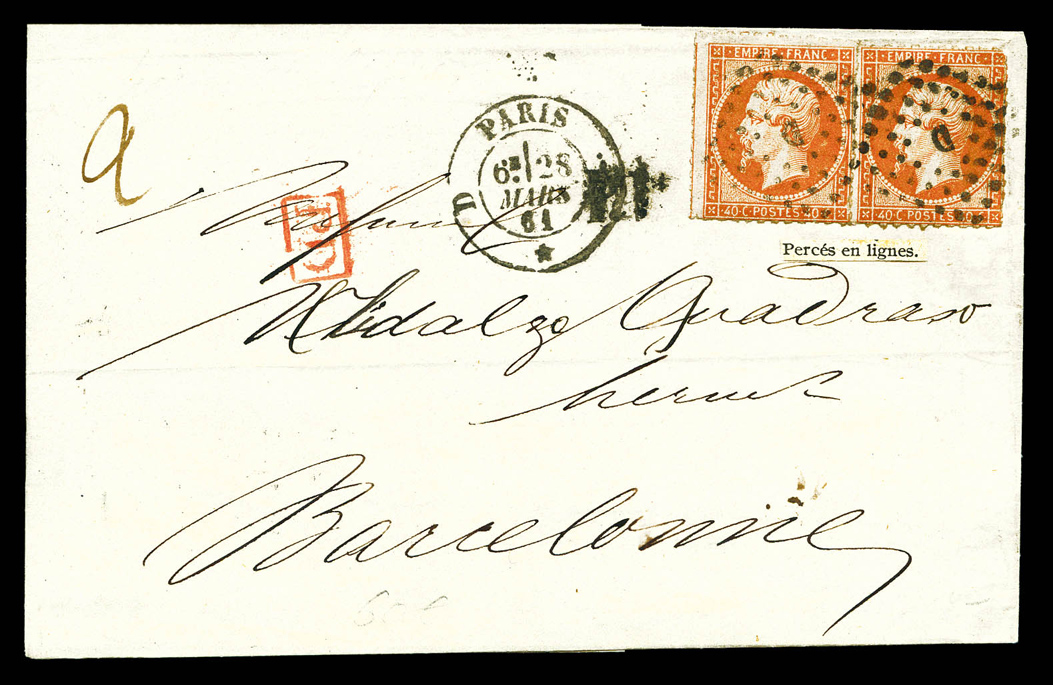 EMPIRE FRANC
EMPIRE FRANC
40·C·POSTES·40·C
40·C·POSTES·40·C
Percés en lignes.
PARIS
6E 28
MARS
61
D
D
PD
Vidalzo Quadras
Barcelonne